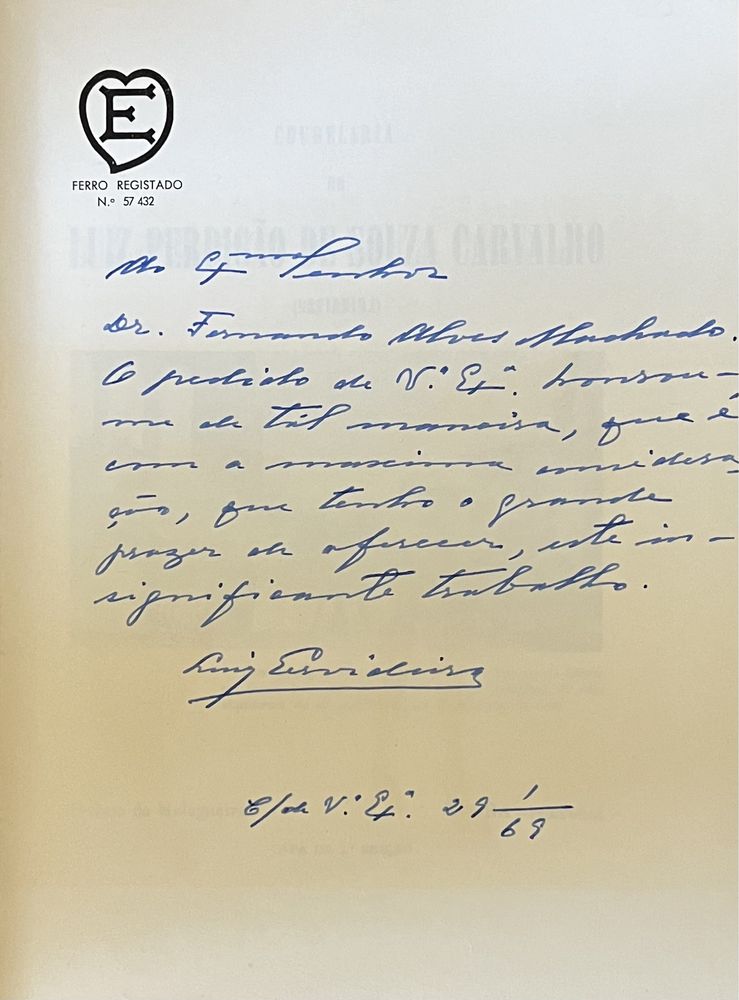 E
FERRO REGISTADO
N.º 57 432
Ao Exmo Senhor
Dr. Fernando Alves Machado.
O pedido de V.ª Ex.ª honrou-
me de tál maneira, que é
com a maxima considera-
ção, que tenho o grande
prazer de oferecer, este in-
significante trabalho.
Luiz Ervideira
C/de V.ª Ex.ª 29 1/69
COUDELARIA
DE
LUIZ PERDIGÃO DE SOUZA CARVALHO